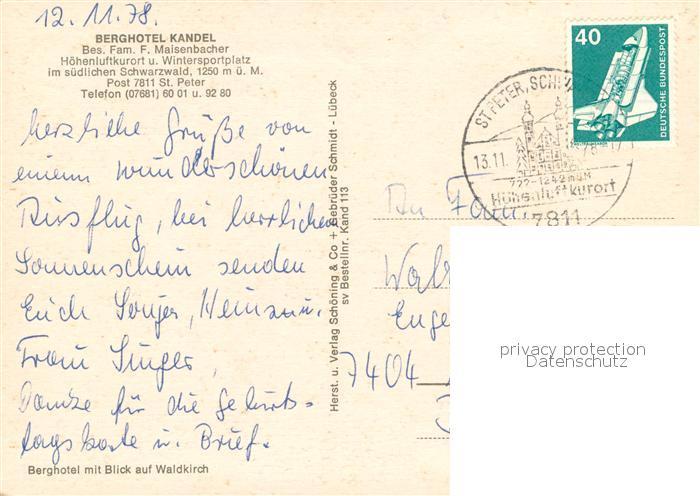 12.11.78.
BERGHOTEL KANDEL
Bes. Fam. F. Maisenbacher
Höhenluftkurort u. Wintersportplatz
im südlichen Schwarzwald, 1250 m ü. M.
Post 7811 St. Peter
Telefon (07681) 60 01 u. 92 80
herzliche Grüße von
einem wunderschönen
Ausflug, bei herrlichem
Sonnenschein senden
Euch Sonja, u.
Frau Singer,
Danke für die Geburts-
tagskarte u. Brief.
Berghotel mit Blick auf Waldkirch
Herst. u. Verlag Schöning & Co + Gebrüder Schmidt - Lübeck
sv Bestellnr. Kand 113
40
DEUTSCHE BUNDESPOST
ST. PETER, SCHWA
13.11.
Höhenluftkurort
7811
An Fam.
Wal
Euge
7404
privacy protection
Datenschutz